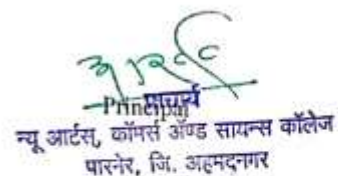 Principal
प्राचार्य
न्यू आर्टस्, कॉमर्स ॲण्ड सायन्स कॉलेज
पारनेर, जि. अहमदनगर